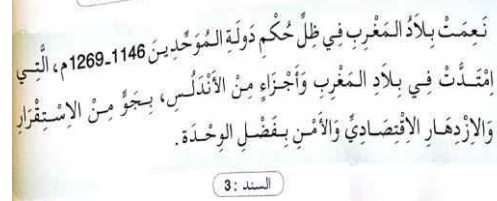 نَعِمَتْ بِلَادُ المَغْرِبِ فِي ظِلِّ حُكْمِ دَولَةِ المُوَحِّدِينَ 1146ـ1269م، الَّتِي
اِمْتَدَّتْ فِي بِلَادِ المَغْرِبِ وَأَجْزَاءٍ مِنْ الأَنْدَلُسِ، بِجَوٍّ مِنْ الاِسْتِقْرَارِ
وَالاِزْدِهَارِ الاِقْتِصَادِيِّ وَالأَمْنِ بِفَضْلِ الوِحْدَةِ.
السند : 3